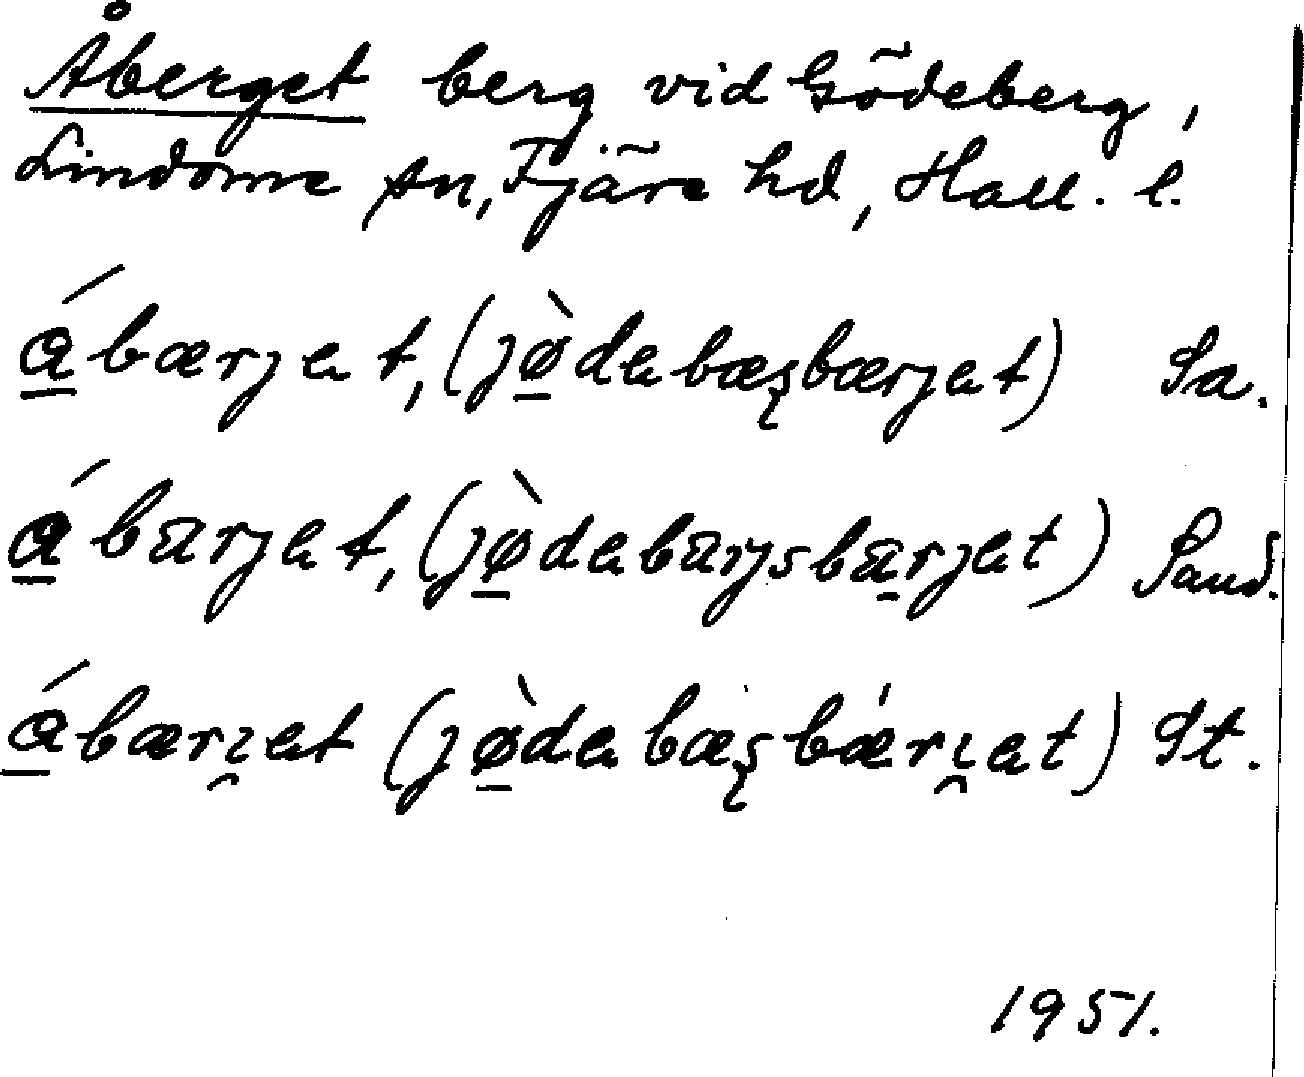 Åberget berg vid Gödeberg,
Lindome sn, Fjäre hd, Hall. l.
ábærjet, (jø̀debæşbærjet) Sa.
ábarjet, (jø̀debarjsbarjet) Sand.
ábærı̯et (jø̀debæşbǽrı̯et) St.
1951.